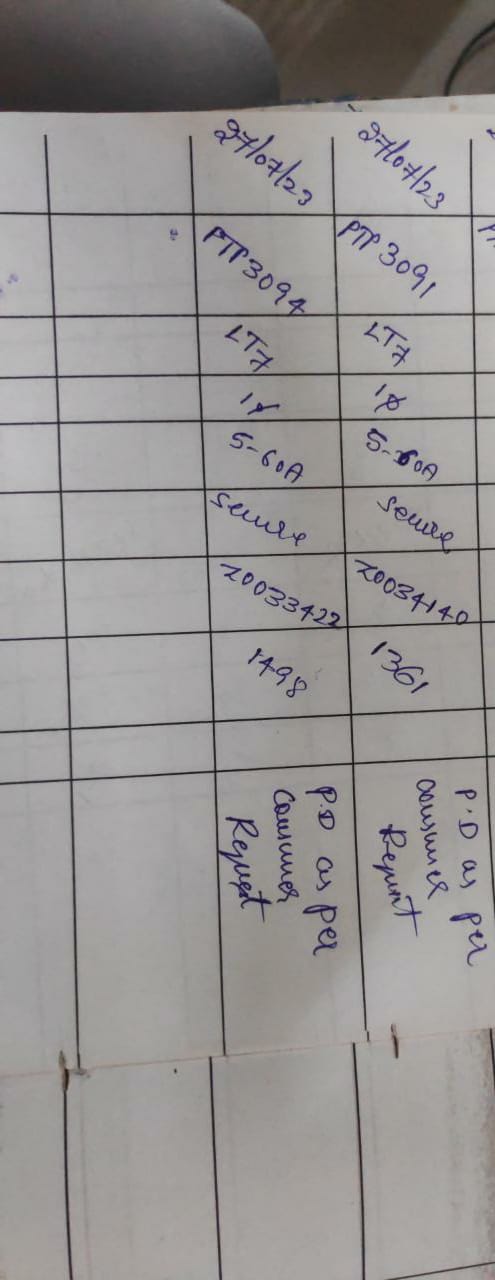 27/07/23 PTP 3091 LT7 1ϕ 5-60A Secure 70034140 1361 P.D as per
Consumer
Request
27/07/23 PTP 3094 LT7 1ϕ 5-60A Secure 70033422 1498 P.D as per
Consumer
Request